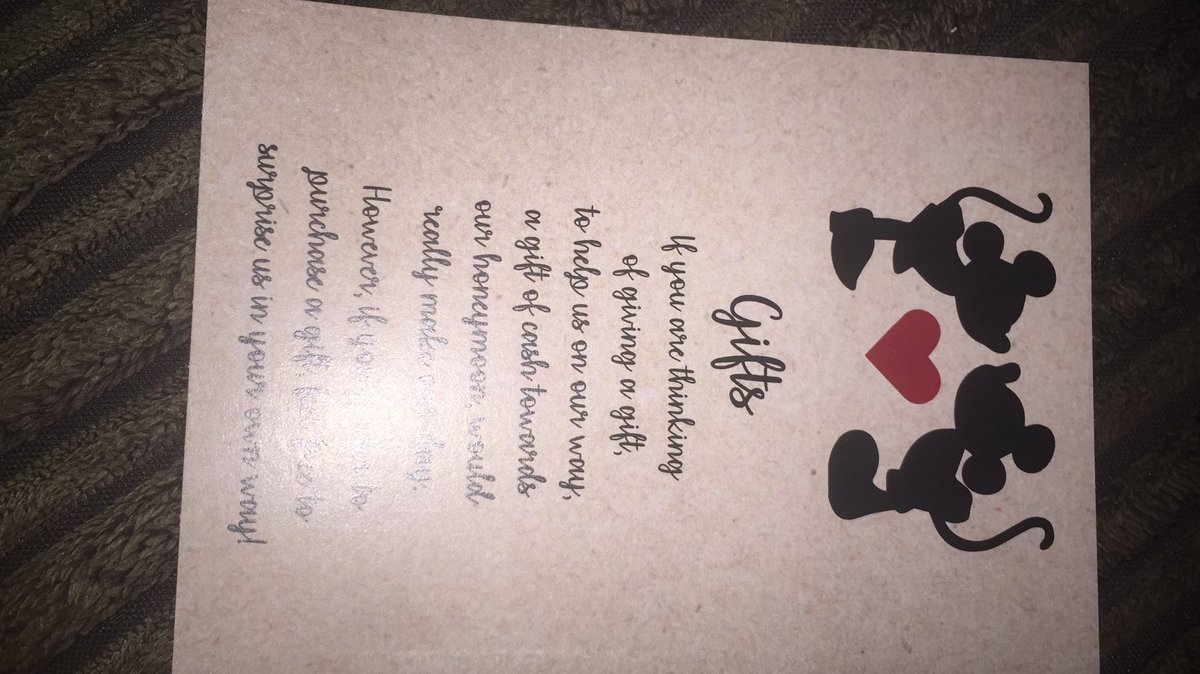 Gifts
If you are thinking
of giving a gift,
to help us on our way,
a gift of cash towards
our honeymoon, would
really make our day.
However, if you prefer to
purchase a gift, feel free to
surprise us in your own way!